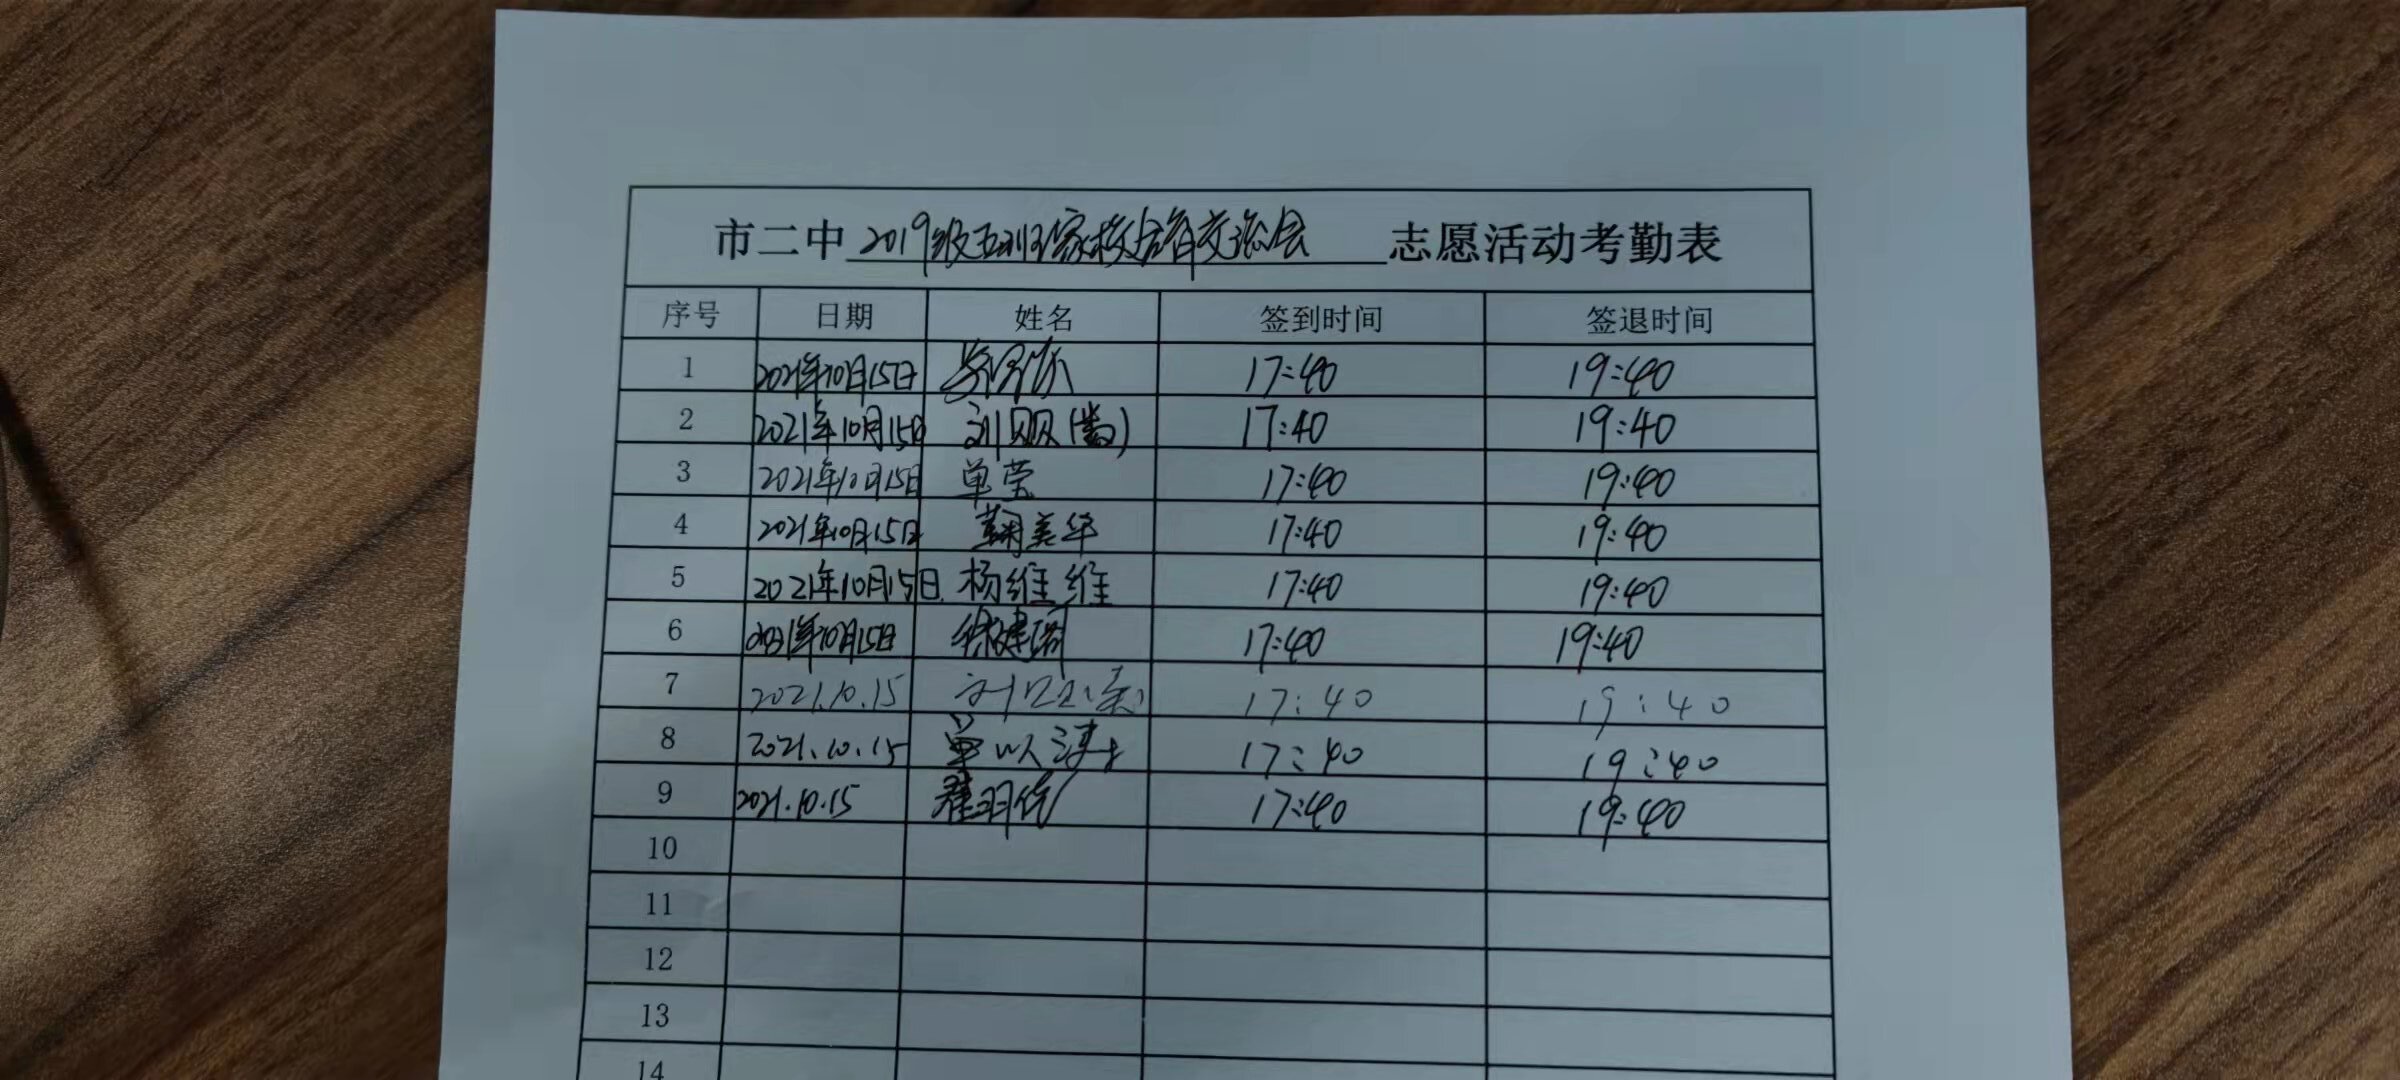 市二中2019级五班家校合育交流会志愿活动考勤表
序号 日期 姓名 签到时间 签退时间
1 2021年10月15日 17:40 19:40
2 2021年10月15日 刘贝贝 17:40 19:40
3 2021年10月15日 单莹 17:40 19:40
4 2021年10月15日 鞠美华 17:40 19:40
5 2021年10月15日 杨维维 17:40 19:40
6 2021年10月15日 17:40 19:40
7 2021.10.15 17:40 19:40
8 2021.10.15 17:40 19:40
9 2021.10.15 17:40 19:40
10
11
12
13
14